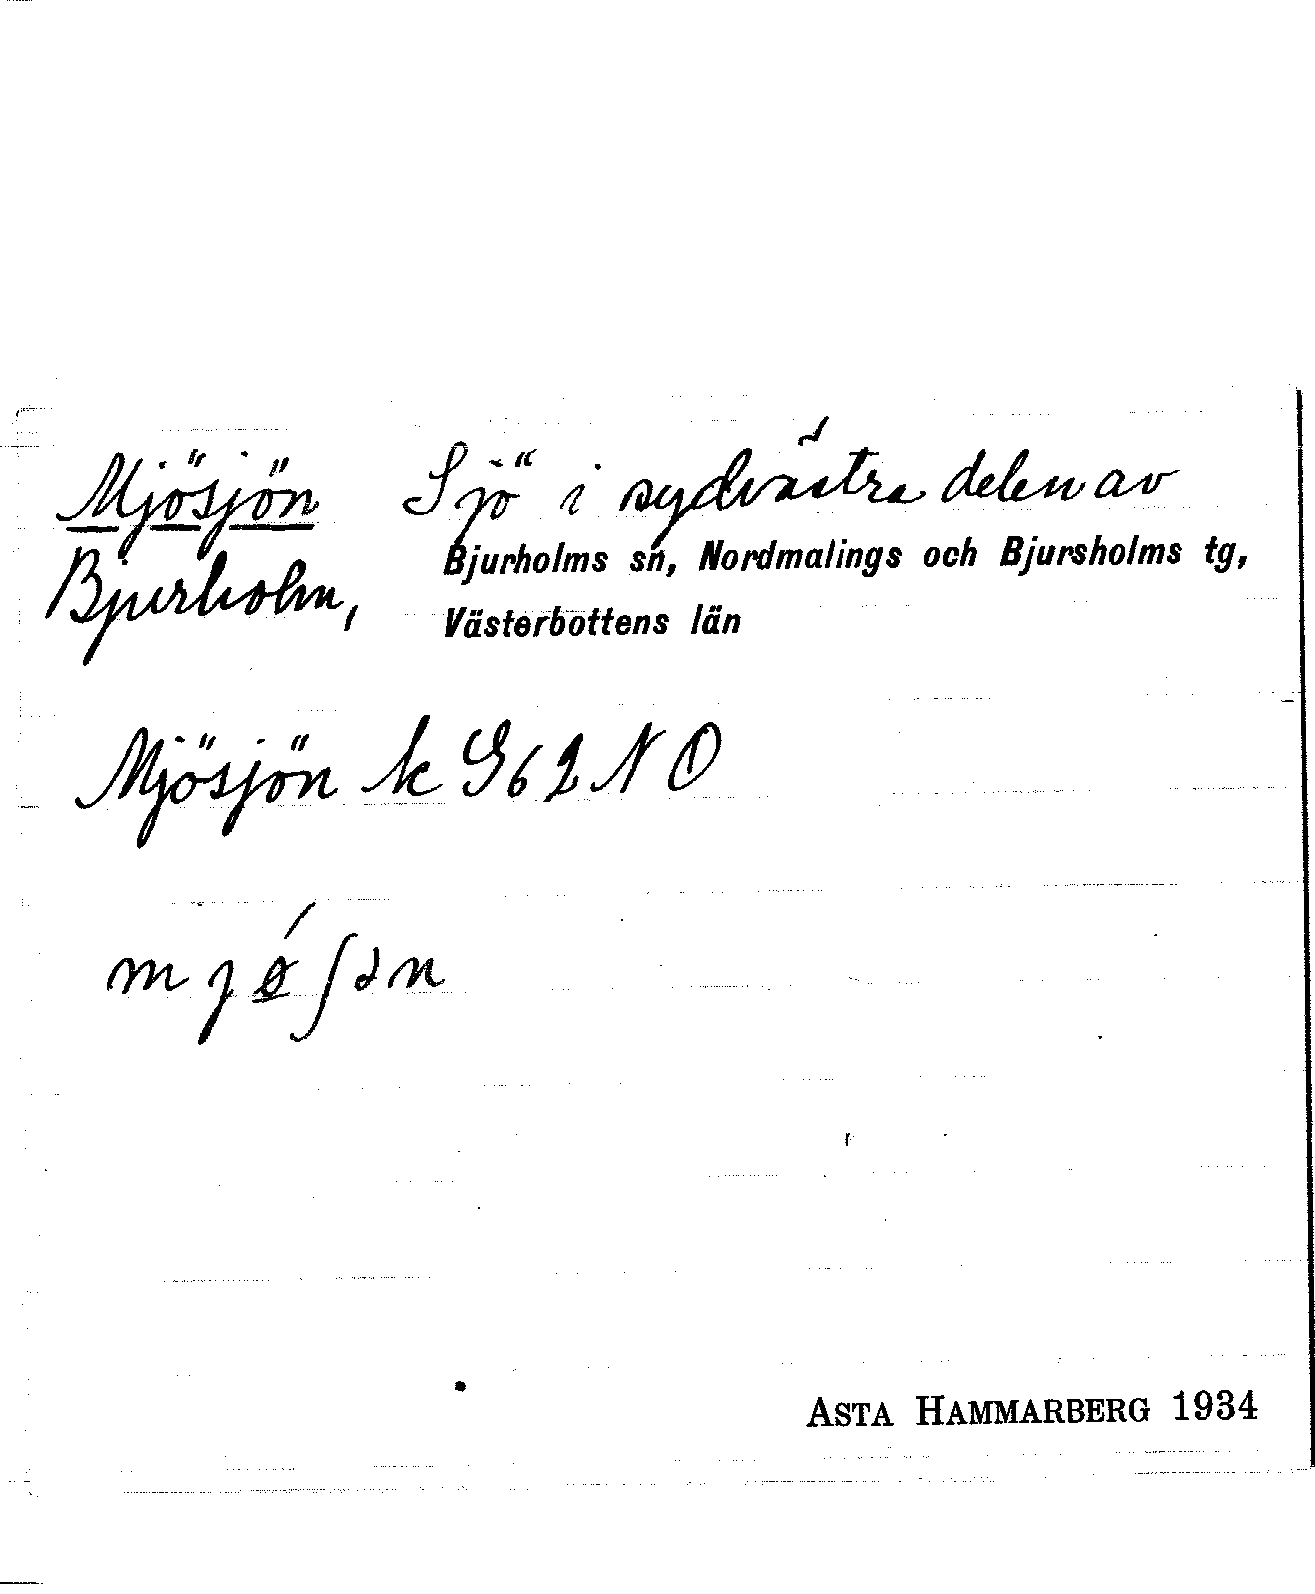 Mjösjön Sjö i sydvästra delen av
Bjurholm, Bjurholms sn, Nordmalings och Bjursholms tg,
Västerbottens län
Mjösjön k G62 NO
mjǿʃən
ASTA HAMMARBERG 1934